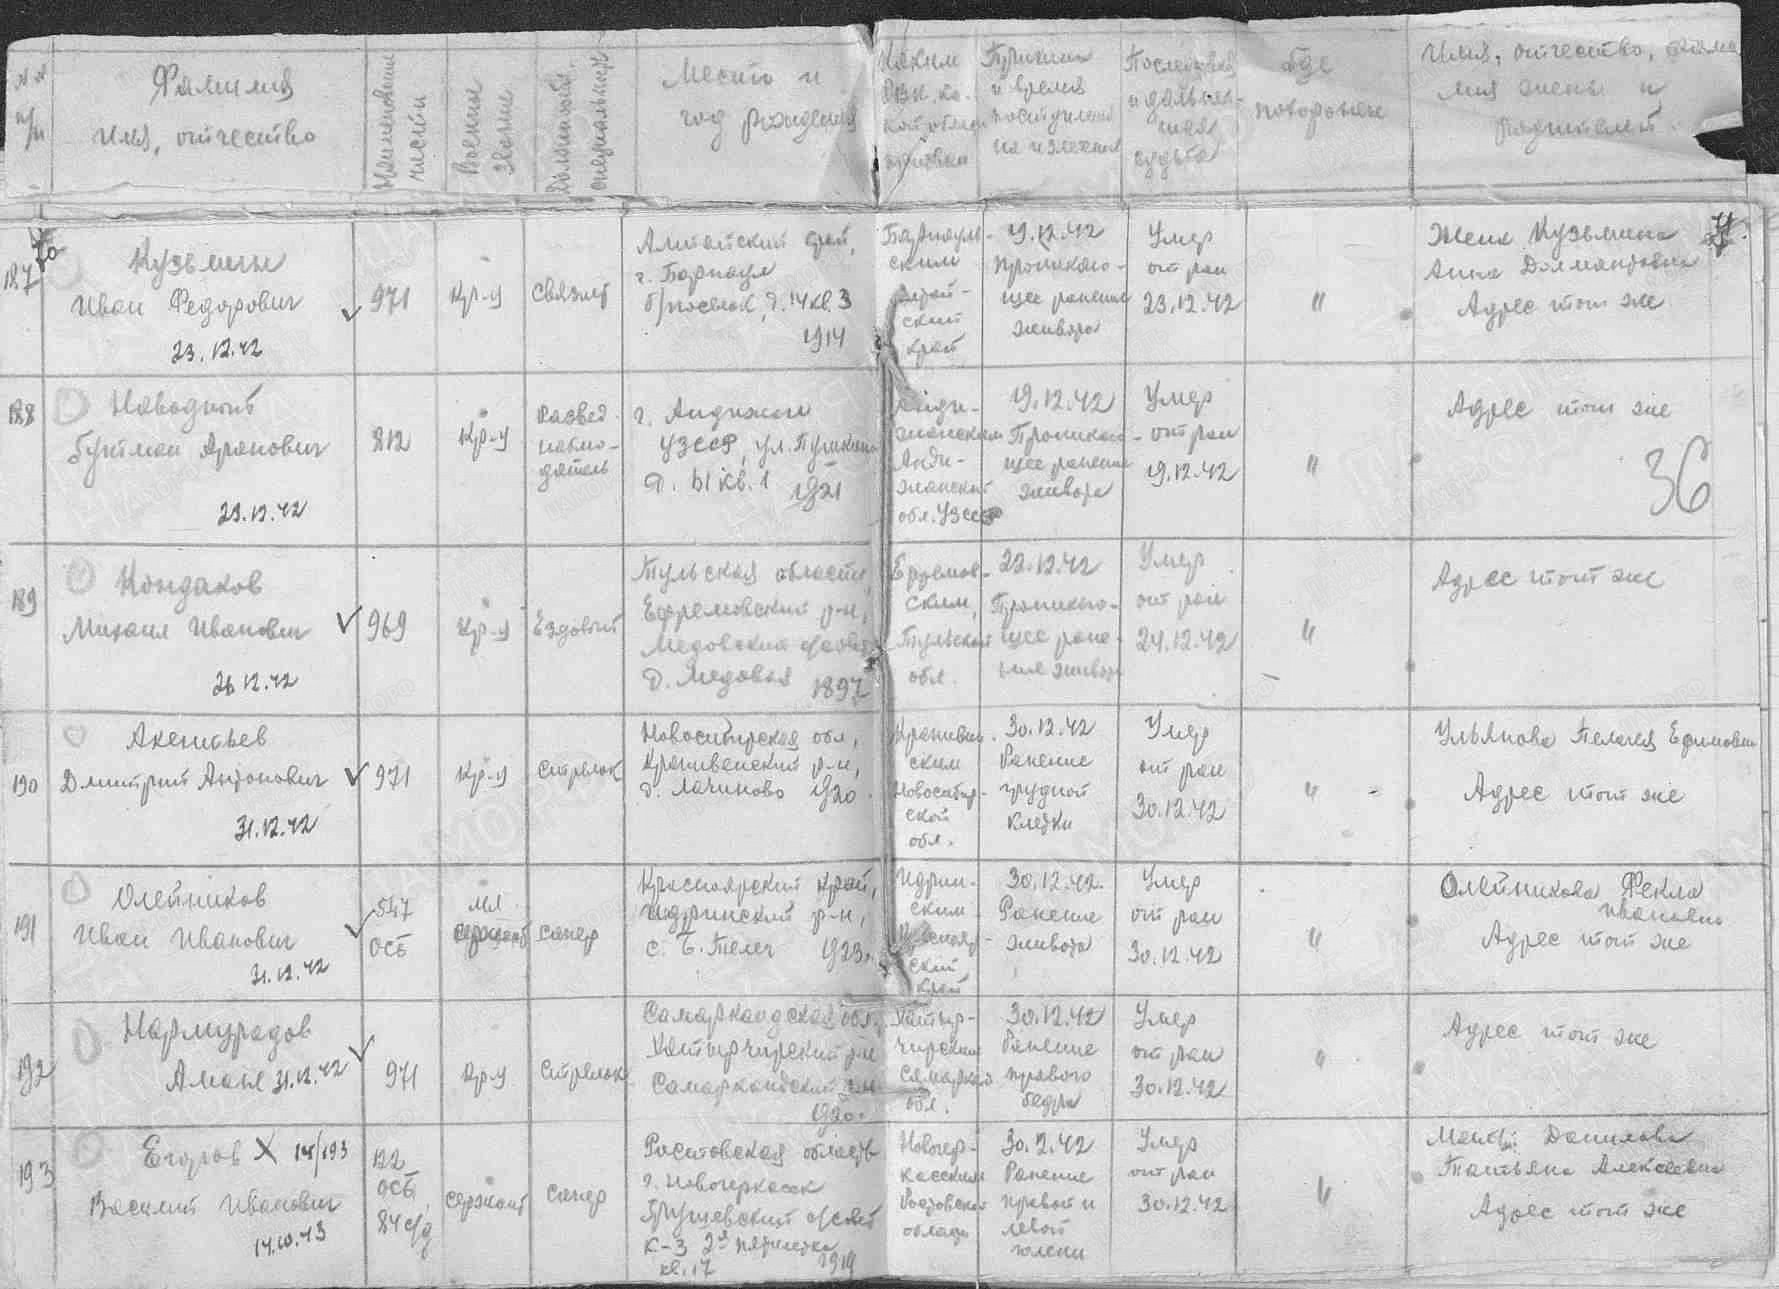 №№ п/п
Фамилия
имя, отчество
Наименование части
Военное звание
Должность, специальность
Место и
год рождения
Каким
РВК
призван
Причина
и время
поступления
на излечение
Последующая
и дальней-
шая
судьба
Где
похоронен
Имя, отчество, фами
лия жены и
родителей
187
Кузьмин
Иван Федорович
23.12.42
971
Кр-ц
связист
Алтайский край,
г. Барнаул
1914
Барнауль-
ским
Алтай-
ский
край
19.12.42
Проникаю-
щее ранение
живота
Умер
от ран
23.12.42
"
Жена Кузьмина
Анна
Адрес тот же
188
Аронович
23.12.42
812
Кр-ц
развед.
наблю-
датель
г. Андижан
УЗССР, ул. Пушкина
кв. 1 1921
Анди-
жанским
Анди-
жанской
обл. УЗССР
19.12.42
Проникаю-
щее ранение
живота
Умер
от ран
19.12.42
"
Адрес тот же
36
189
Кондаков
Михаил Иванович
26.12.42
969
Кр-ц
Ездовый
Тульская область,
Ефремовский р-н,
Медовский с/совет
д. Медовая 1897
Ефремов-
ским,
Тульской
обл.
22.12.42
Проникаю-
щее ране-
ние живота
Умер
от ран
24.12.42
"
Адрес тот же
190
Акентьев
Дмитрий Антонович
31.12.42
971
Кр-ц
стрелок
Новосибирская обл,
Крапивенский р-н,
д. Лачиново 1920.
Крапивин-
ским
Новосибир-
ской
обл.
30.12.42
Ранение
грудной
клетки
Умер
от ран
30.12.42
"
Ульянова Пелагея Ефимовна
Адрес тот же
191
Олейников
Иван Иванович
31.12.42
547
ОСБ
мл.
сержант
сапер
Красноярский край,
Идринский р-н,
с. Б. Телек 1923.
Идрин-
ским
Краснояр-
ский
край
30.12.42.
Ранение
живота
Умер
от ран
30.12.42
"
Олейникова Фекла
Ивановна
Адрес тот же
192
Нармурадов
31.12.42
971
Кр-ц
стрелок
Самаркандская обл.
Хатырчирский р-н
1920.
Хатыр-
чирским
Самарканд.
обл.
30.12.42
Ранение
правого
бедра
Умер
от ран
30.12.42
"
Адрес тот же
193
Егоров X 14/193
Василий Иванович
14.10.43
122
ОСБ,
84 с/д
сержант
сапер
Ростовская область
г. Новочеркасск
Грушевский с/совет
К-3 2я пятилетка
кв. 17 1919
Новочер-
касским
Ростовской
области
30.2.42
Ранение
правой и
левой
голени
Умер
от ран
30.12.42
"
Мать: Данилова
Татьяна Алексеевна
Адрес тот же